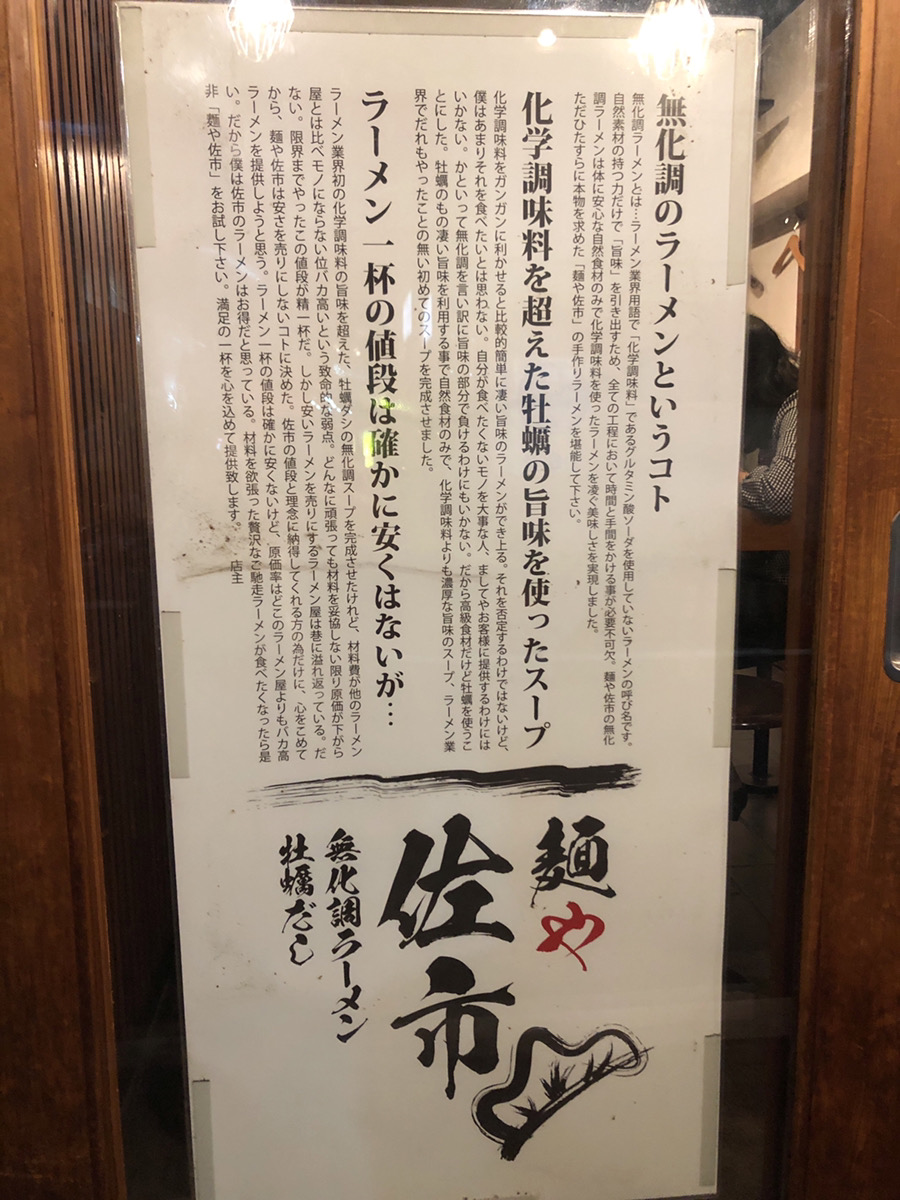 無化調のラーメンというコト
無化調ラーメンとは…ラーメン業界用語で「化学調味料」であるグルタミン酸ソーダを使用していないラーメンの呼び名です。
自然素材の持つ力だけで「旨味」を引き出すため、全ての工程において時間と手間をかける事が必要不可欠。麺や佐市の無化
調ラーメンは体に安心な自然食材のみで化学調味料を使ったラーメンを凌ぐ美味しさを実現しました。
ただひたすらに本物を求めた「麺や佐市」の手作りラーメンを堪能して下さい。
化学調味料を超えた牡蠣の旨味を使ったスープ
化学調味料をガンガンに利かせると比較的簡単に凄い旨味のラーメンができ上る。それを否定するわけではないけど、
僕はあまりそれを食べたいとは思わない。自分が食べたくないモノを大事な人、ましてやお客様に提供するわけには
いかない。かといって無化調を言い訳に旨味の部分で負けるわけにもいかない。だから高級食材だけど牡蠣を使うこ
とにした。牡蠣のもの凄い旨味を利用する事で自然食材のみで、化学調味料よりも濃厚な旨味のスープ、ラーメン業
界でだれもやったことの無い初めてのスープを完成させました。
ラーメン一杯の値段は確かに安くはないが…
ラーメン業界初の化学調味料の旨味を超えた、牡蠣ダシの無化調スープを完成させたけれど、材料費が他のラーメン
屋とは比べモノにならない位バカ高いという致命的な弱点。どんなに頑張っても材料を妥協しない限り原価が下がら
ない。限界までやったこの値段が精一杯だ。しかし安いラーメンを売りにするラーメン屋は巷に溢れ返っている。だ
から、麺や佐市は安さを売りにしないコトに決めた。佐市の値段と理念に納得してくれる方の為だけに、心をこめて
ラーメンを提供しようと思う。ラーメン一杯の値段は確かに安くないけど、原価率はどこのラーメン屋よりもバカ高
い。だから僕は佐市のラーメンはお得だと思っている。材料を欲張った贅沢なご馳走ラーメンが食べたくなったら是
非「麺や佐市」をお試し下さい。満足の一杯を心を込めて提供致します。 店主
麺や
佐市
無化調ラーメン
牡蠣だし